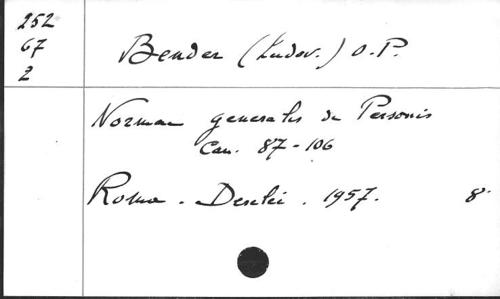 252
67
2
Bender (Ludov.) O.P.
Normae generales de Personis
Can. 87-106
Roma. Desclée. 1957. 8°